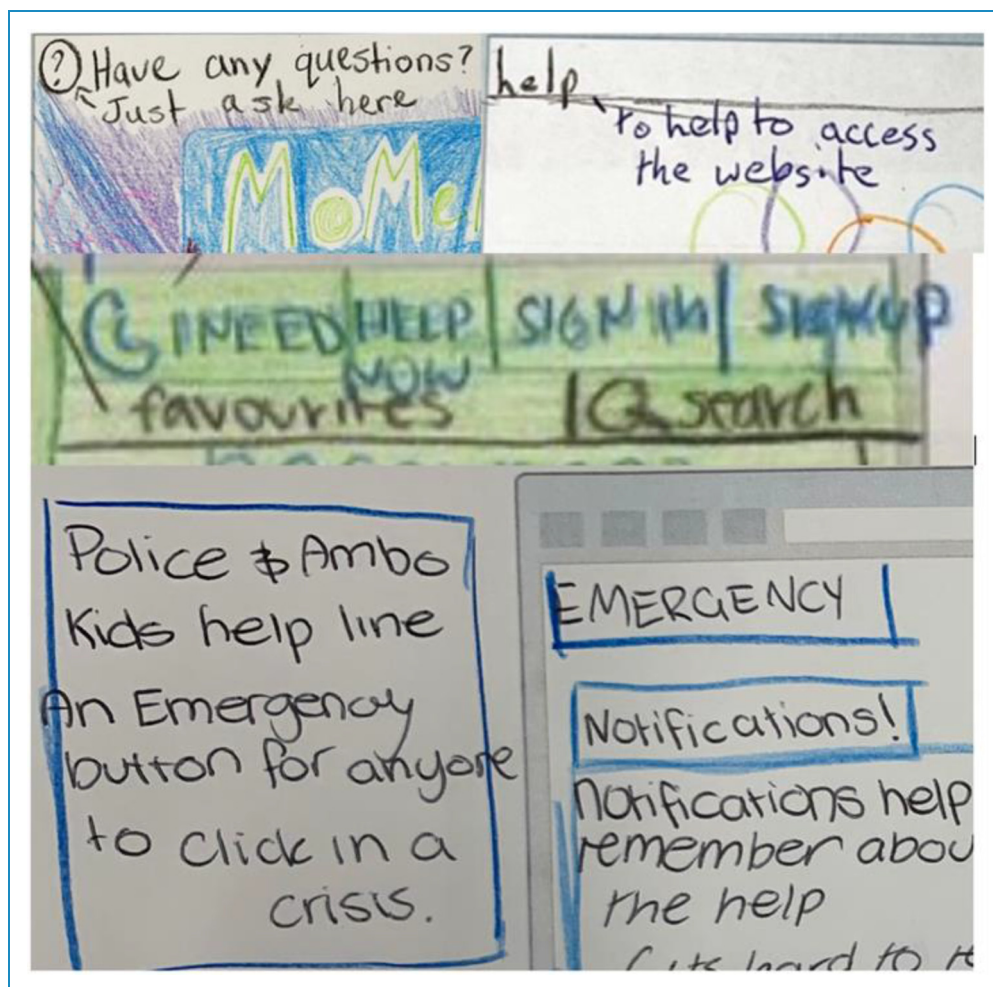 ? Have any questions?
Just ask here
MoMe
help
To help to access
the website
I NEED HELP SIGN IN SIGN UP
NOW
favourites search
Police & Ambo
Kids help line
An Emergency
button for anyone
to click in a
crisis.
EMERGENCY
Notifications!
Notifications help
remember abou
the help
hard to